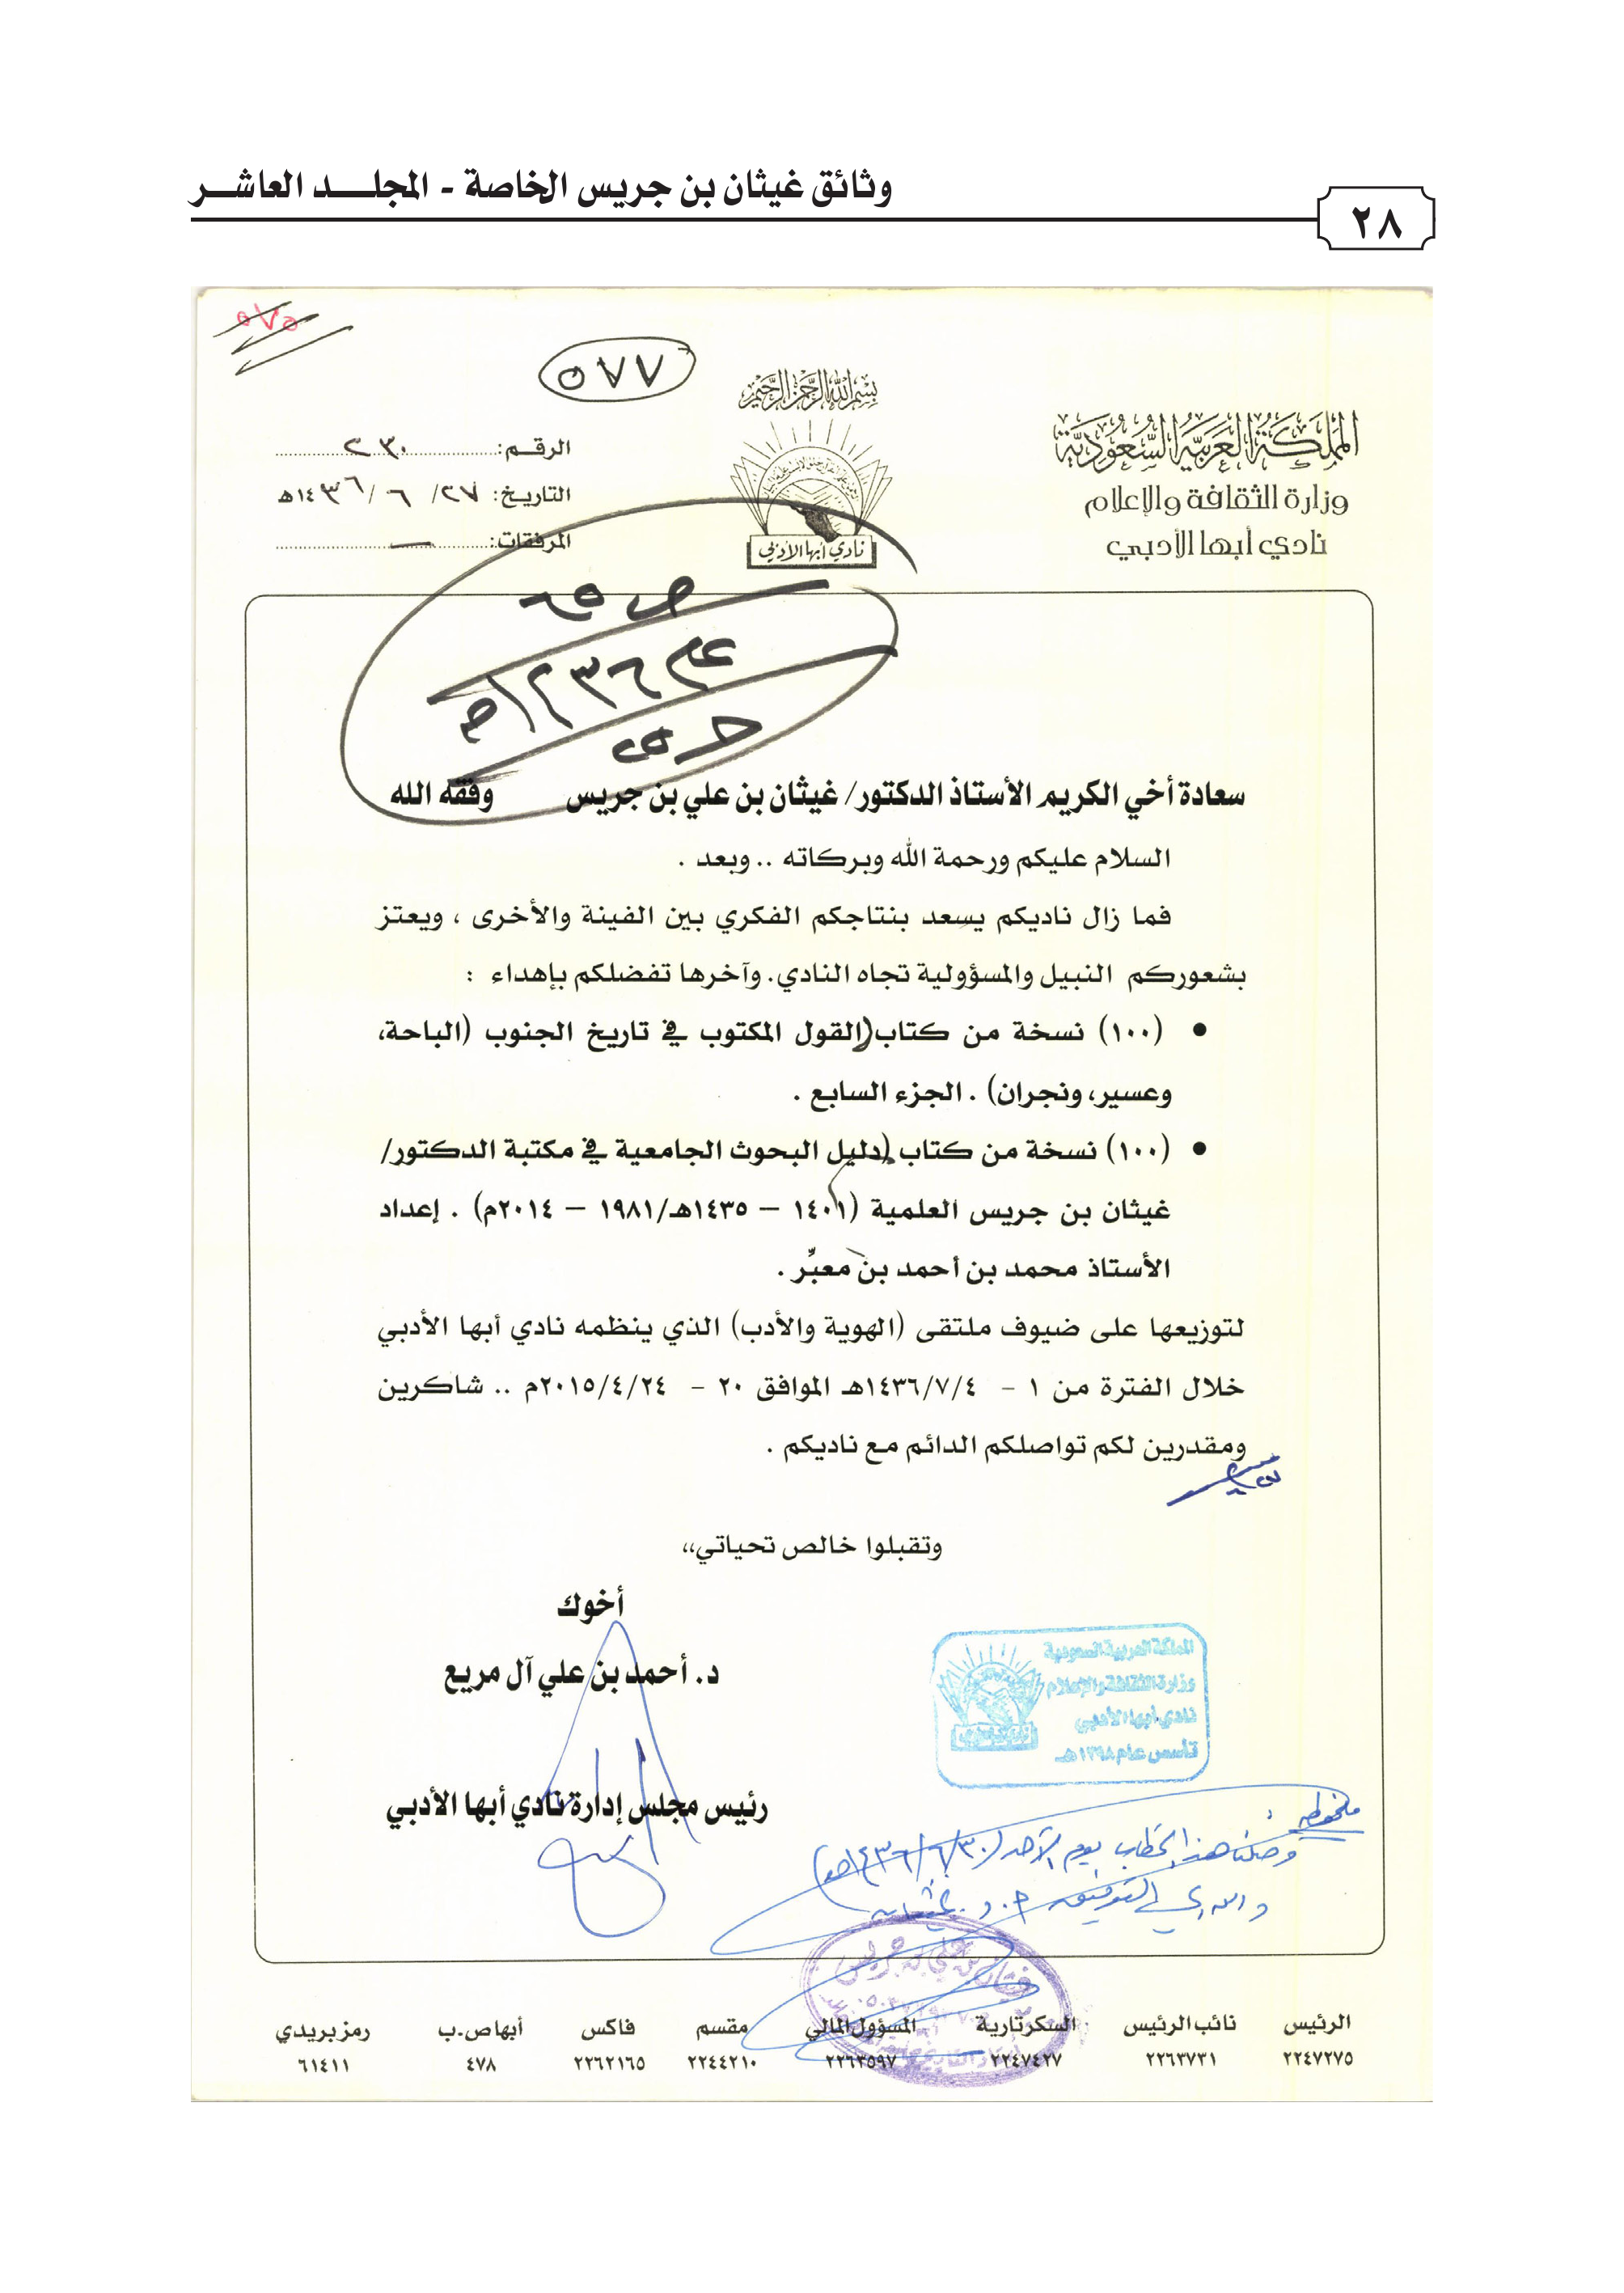 وثائق غيثان بن جريس الخاصة - المجلـــد العاشـــر
٢٨
٥٧٥
٥٧٧
بسم الله الرحمن الرحيم
المملكة العربية السعودية
وزارة الثقافة والإعلام
نادي أبها الأدبي
نادي أبها الأدبي
الرقـم: ٢٣٠
التاريخ: ٢٧/ ٦ /١٤٣٦هـ
المرفقات: ــ
سعادة أخي الكريم الأستاذ الدكتور/ غيثان بن علي بن جريس وفقه الله
السلام عليكم ورحمة الله وبركاته .. وبعد .
فما زال ناديكم يسعد بنتاجكم الفكري بين الفينة والأخرى ، ويعتز
بشعوركم النبيل والمسؤولية تجاه النادي. وآخرها تفضلكم بإهداء :
• (١٠٠) نسخة من كتاب (القول المكتوب في تاريخ الجنوب (الباحة،
وعسير، ونجران) . الجزء السابع .
• (١٠٠) نسخة من كتاب (دليل البحوث الجامعية في مكتبة الدكتور/
غيثان بن جريس العلمية (١٤٠١ – ١٤٣٥هـ/١٩٨١ – ٢٠١٤م) . إعداد
الأستاذ محمد بن أحمد بن معبّر .
لتوزيعها على ضيوف ملتقى (الهوية والأدب) الذي ينظمه نادي أبها الأدبي
خلال الفترة من ١ - ١٤٣٦/٧/٤هـ الموافق ٢٠ - ٢٠١٥/٤/٢٤م .. شاكرين
ومقدرين لكم تواصلكم الدائم مع ناديكم .
وتقبلوا خالص تحياتي،،
أخوك
د. أحمد بن علي آل مريع
رئيس مجلس إدارة نادي أبها الأدبي
المملكة العربية السعودية
وزارة الثقافة والإعلام
نادي أبها الأدبي
تأسس عام ١٣٩٨هـ
ملحوظة :
وصلنا هذا الخطاب يوم الأحد (١٤٣٦/٦/٣٠هـ)
والله ولي التوفيق أ. د. غيثان
غيثان بن علي بن جريس
الرئيس
٢٢٤٧٢٧٥
نائب الرئيس
٢٢٦٣٧٣١
السكرتارية
٢٢٤٧٤٢٧
المسؤول المالي
٢٢٦٣٥٩٧
مقسم
٢٢٤٤٢١٠
فاكس
٢٢٦٢١٦٥
أبها ص.ب
٤٧٨
رمز بريدي
٦١٤١١